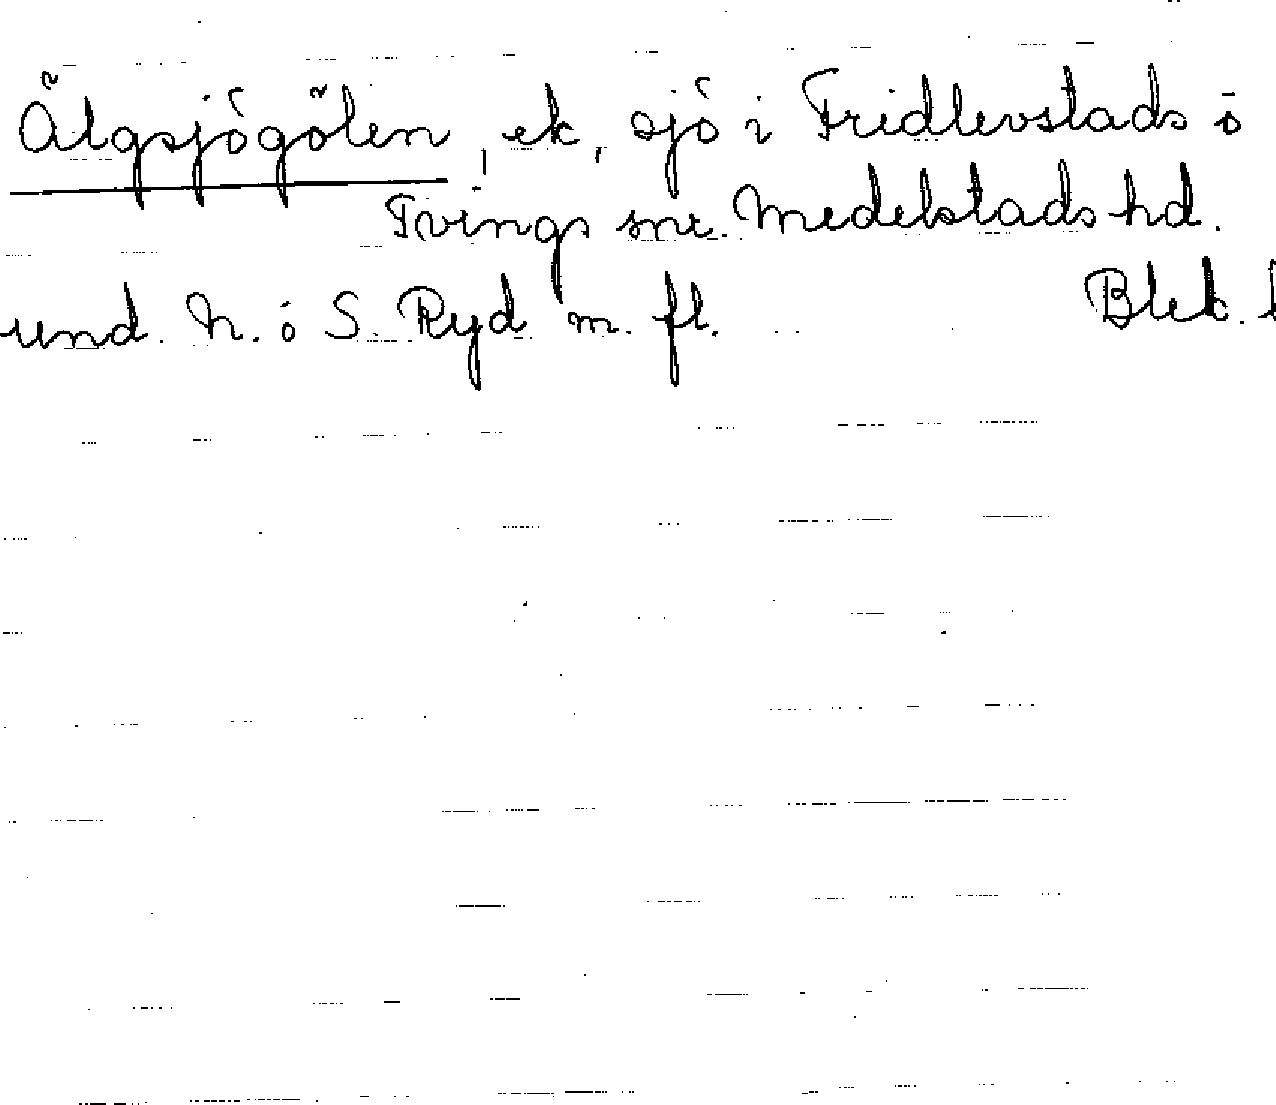 Älgsjögölen, ek, sjö i Fridlevstads o
Tvings snr. Medelstads hd.
und. N. o S. Ryd m. fl. Blek. l